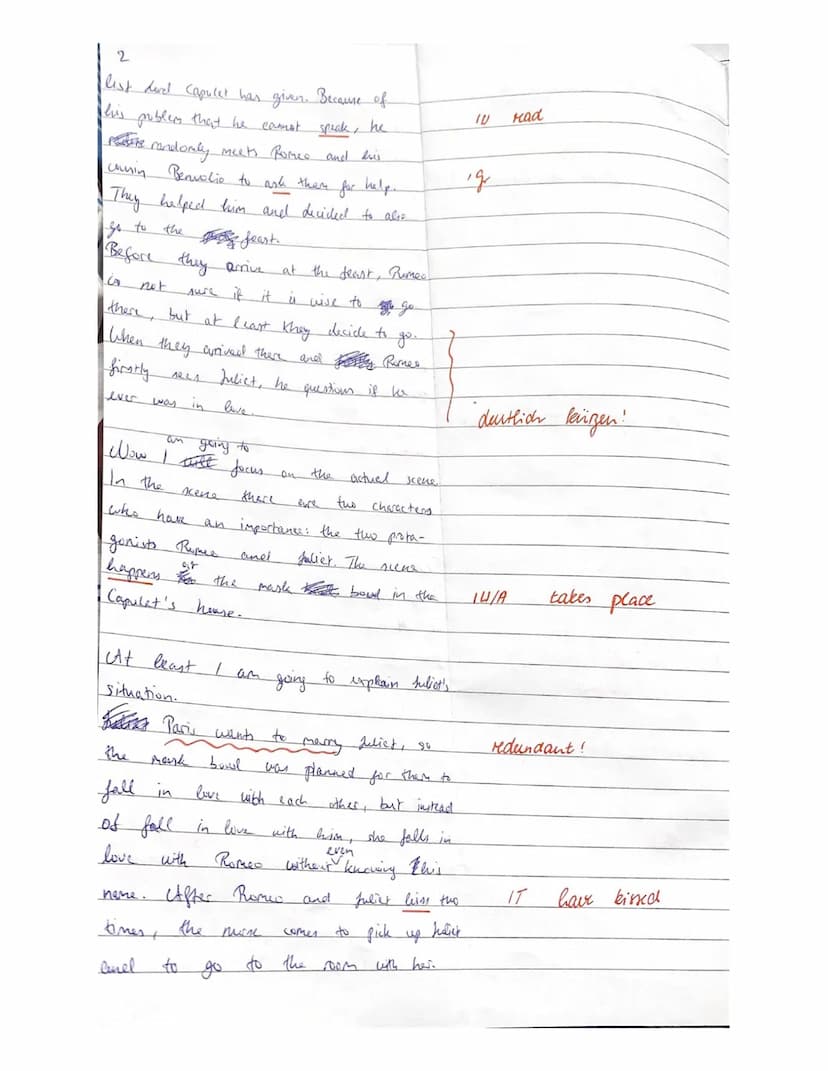 2
list Lord Capulet has given. Because of
his problem that he cannot speak, he
randomly meets Romeo and his
cousin Benvolio to ask them for help.
They helped him and decided to also
go to the feast.
Before they arrive at the feast, Romeo
is not sure if it is wise to go
there, but at least they decide to go.
When they arrived there and Romeo
firstly sees Juliet, he questions if he
ever was in love.
Now I am going to focus on the actual scene
In the scene there are two characters
who have an importance: the two prota-
gonists Romeo and Juliet. The scene
happens at the mask bowl in the
Capulet's house.
At least I am going to explain Juliet's
situation.
Paris wants to marry Juliet, so
the mask bowl was planned for them to
fall in love with each other, but instead
of fall in love with him, she falls in
love with Romeo without even knowing his
name. After Romeo and Juliet kiss two
times, the nurse comes to pick up Juliet
and to go to the room with her.
read
deutlich kürzen!
takes place
redundant!
have kissed